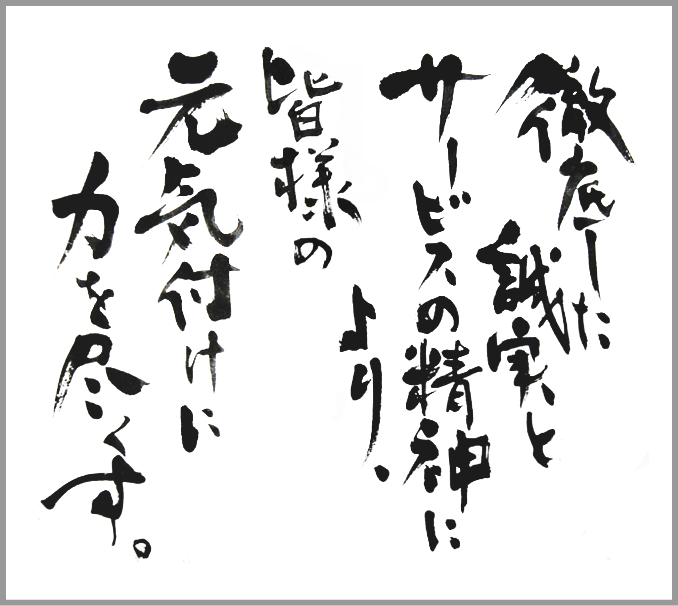 徹底した
誠実と
サービスの精神に
より、
皆様の
元気付けに
力を尽くす。